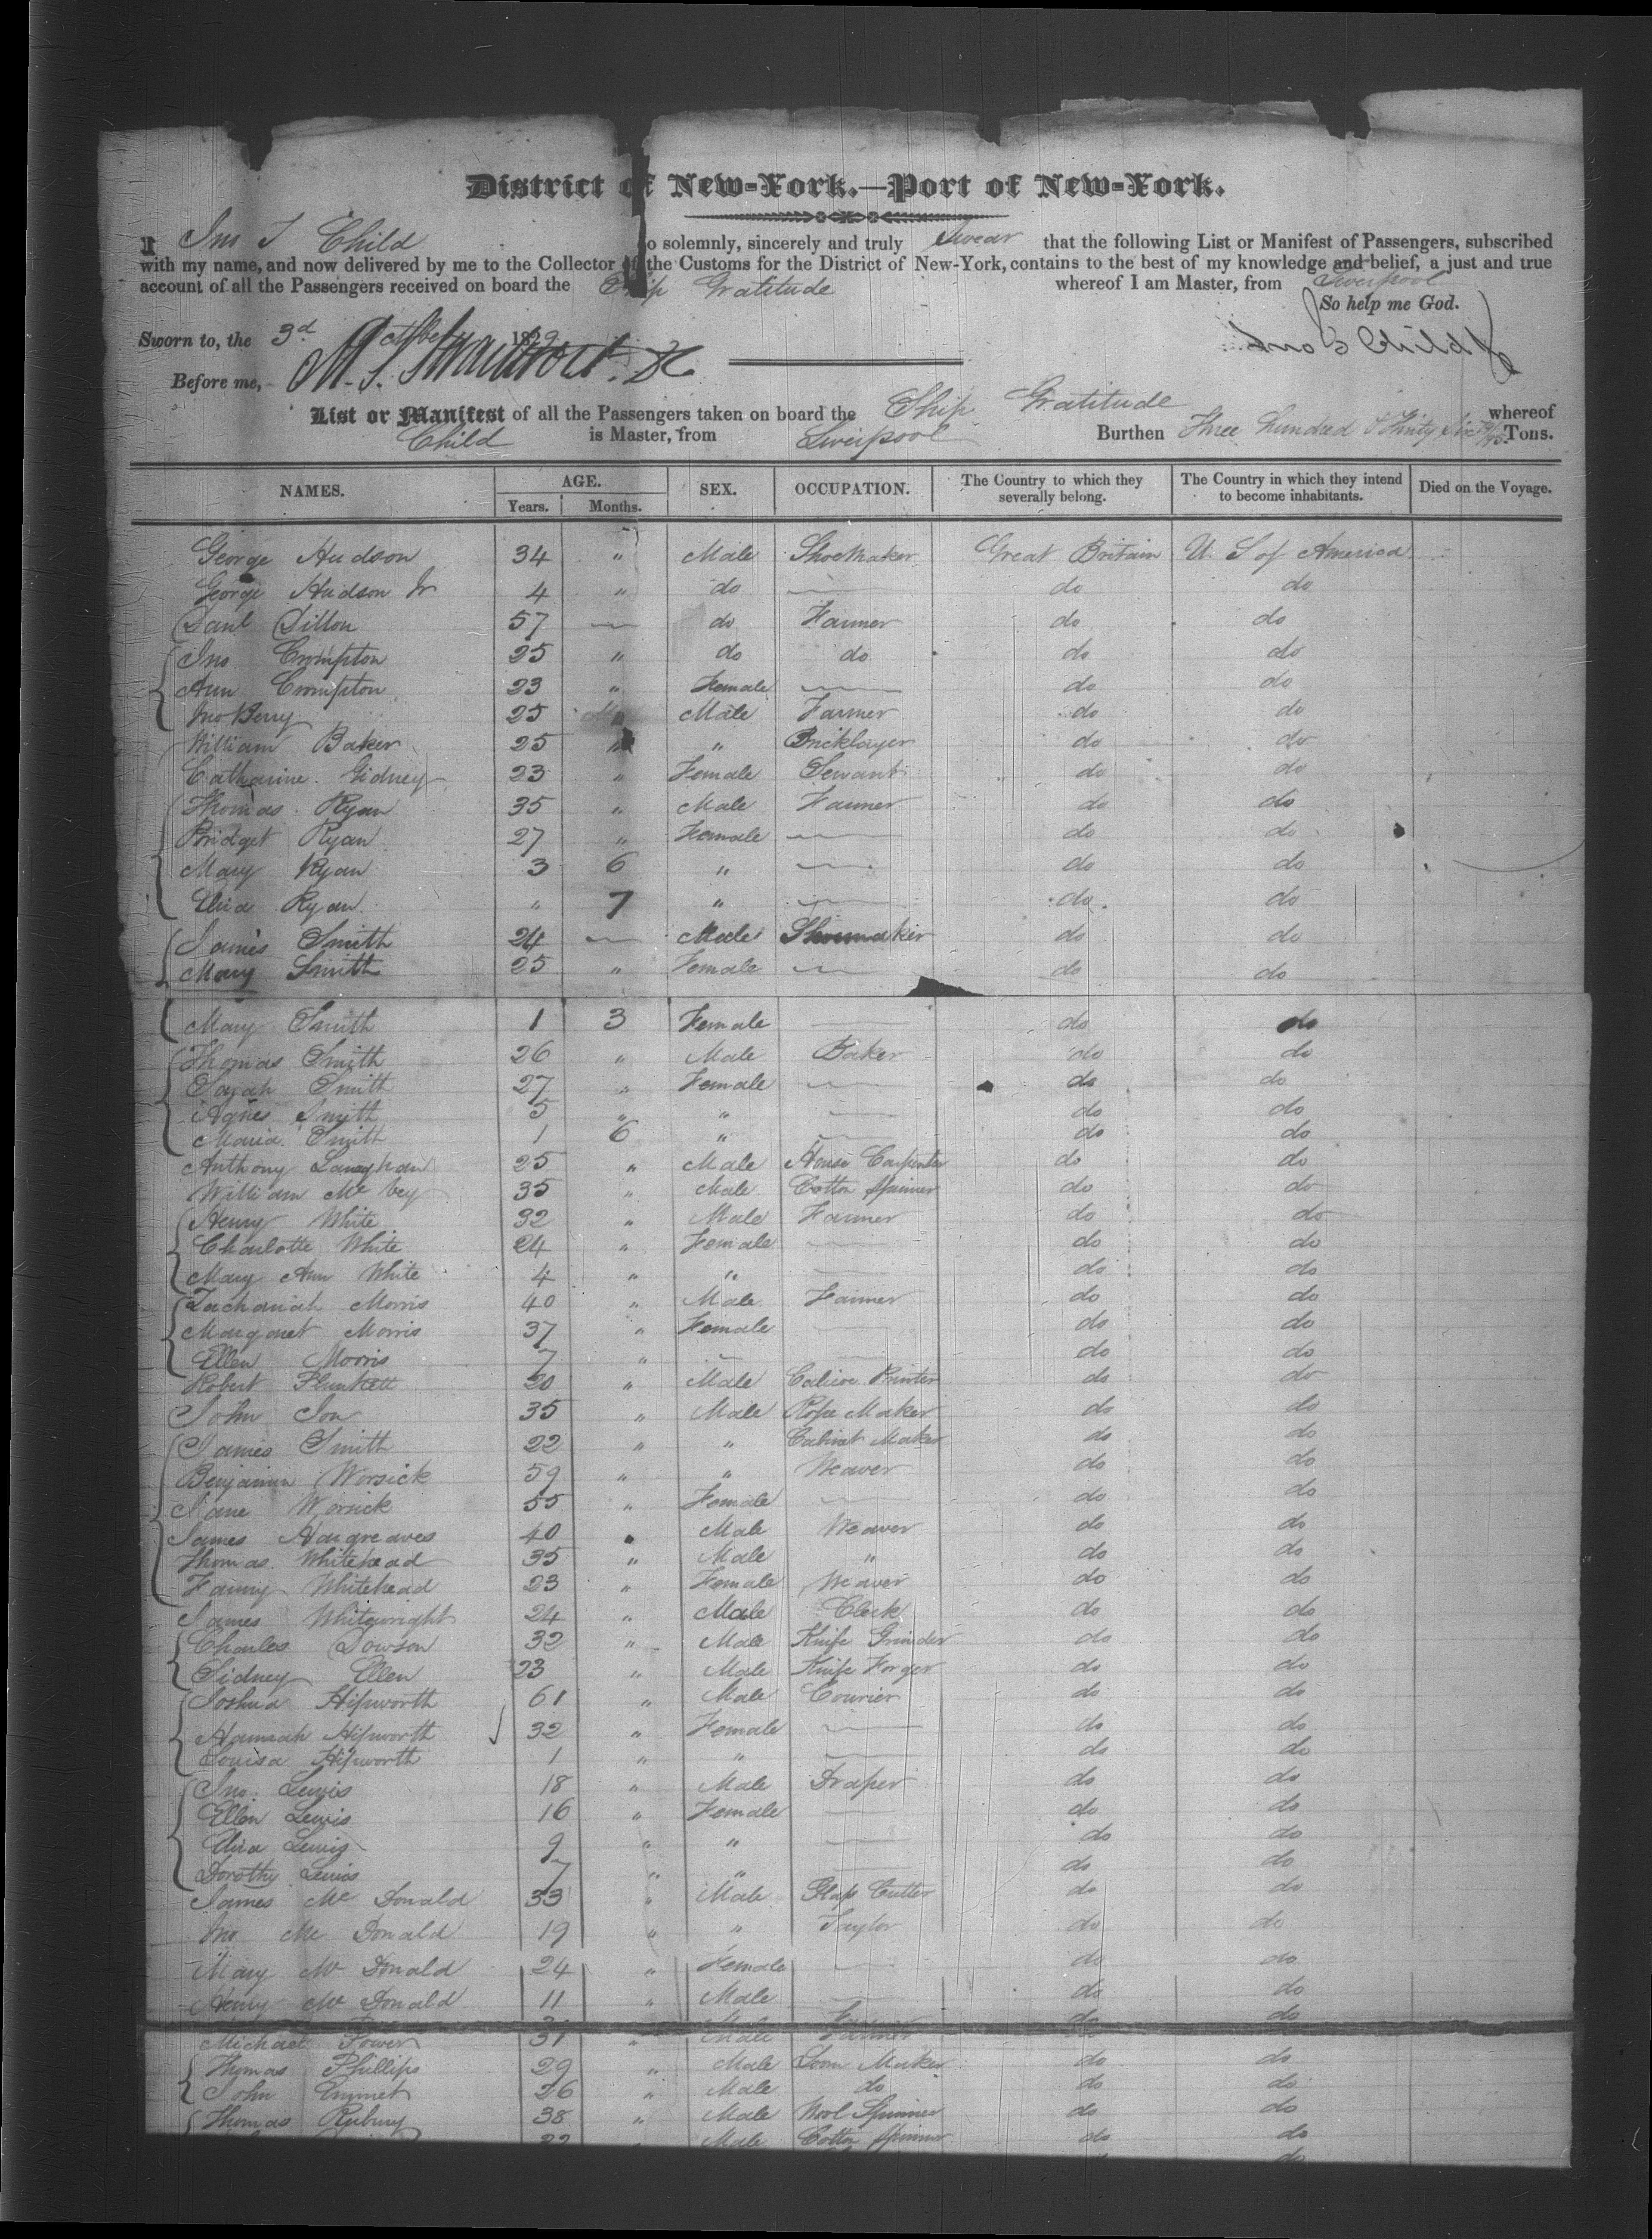 District of New-York.—Port of New-York.
I Jno T Child do solemnly, sincerely and truly Swear that the following List or Manifest of Passengers, subscribed
with my name, and now delivered by me to the Collector of the Customs for the District of New-York, contains to the best of my knowledge and belief, a just and true
account of all the Passengers received on board the Ship Gratitude whereof I am Master, from Liverpool
So help me God.
Sworn to, the 3d October 1829
Before me,
List or Manifest of all the Passengers taken on board the Ship Gratitude whereof
Child is Master, from Liverpool Burthen Three hundred & thirty six Tons.
NAMES. AGE. Years. Months. SEX. OCCUPATION. The Country to which they severally belong. The Country in which they intend to become inhabitants. Died on the Voyage.
George Hudson 34 " Male Shoe Maker Great Britain U. S of America
George Hudson Jr 4 " do — do do
Danl Dillon 57 — do Farmer do do
Jno Crompton 25 " do do do do
Ann Crompton 23 " Female — do do
Jno Berry 25 Male Farmer do do
William Baker 25 " " Bricklayer do do
Catharine Gidney 23 " Female Servant do do
Thomas Ryan 35 " Male Farmer do do
Bridget Ryan 27 " Female — do do
Mary Ryan 3 6 " — do do
Eliza Ryan " 7 " — do do
James Smith 24 — Male Shoemaker do do
Mary Smith 25 " Female — do do
Mary Smith 1 3 Female — do do
Thomas Smith 26 " Male Baker do do
Sarah Smith 27 " Female — do do
Agnes Smith 5 " " — do do
Maria Smith 1 6 " — do do
Anthony Lanaghan 25 " Male House Carpenter do do
William Mc Vey 35 " Male Cotton Spinner do do
Henry White 32 " Male Farmer do do
Charlotte White 24 " Female — do do
Mary Ann White 4 " " — do do
Zachariah Morris 40 " Male Farmer do do
Margaret Morris 37 " Female — do do
Ellen Morris 7 " — — do do
Robert Plunkett 20 " Male Calicoe Printer do do
John Ion 35 " Male Rope Maker do do
James Smith 22 " " Cabinet Maker do do
Benjamin Worsick 59 " " Weaver do do
Jane Worsick 55 " Female — do do
James Hargreaves 40 " Male Weaver do do
Thomas Whitehead 35 " Male " do do
Fanny Whitehead 23 " Female Weaver do do
James Whitewright 24 " Male Clerk do do
Charles Dowson 32 " Male Knife Grinder do do
Sidney Ellen 23 " Male Knife Forger do do
Joshua Hipworth 61 " Male Courier do do
Hannah Hipworth 32 " Female — do do
Louisa Hipworth 1 " " — do do
Jno. Lewis 18 " Male Draper do do
Ellen Lewis 16 " Female — do do
Eliza Lewis 9 " " — do do
Dorothy Lewis 7 " " — do do
James Mc Donald 33 " Male Glass Cutter do do
Jno Mc Donald 19 " " Taylor do do
Mary Mc Donald 24 " Female — do do
Henry Mc Donald 11 " Male — do do
Michael Power 31 " Male Farmer do do
Thomas Phillips 29 " Male Loom Maker do do
John Emmet 26 " Male do do do
Thomas Rubury 38 " Male Wool Spinner do do
22 Male Cotton Spinner do do
do